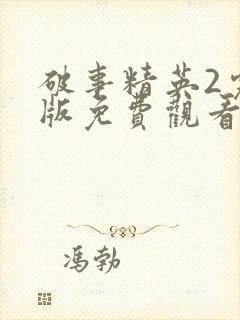 破事精英2
版免費觀看
馮勃